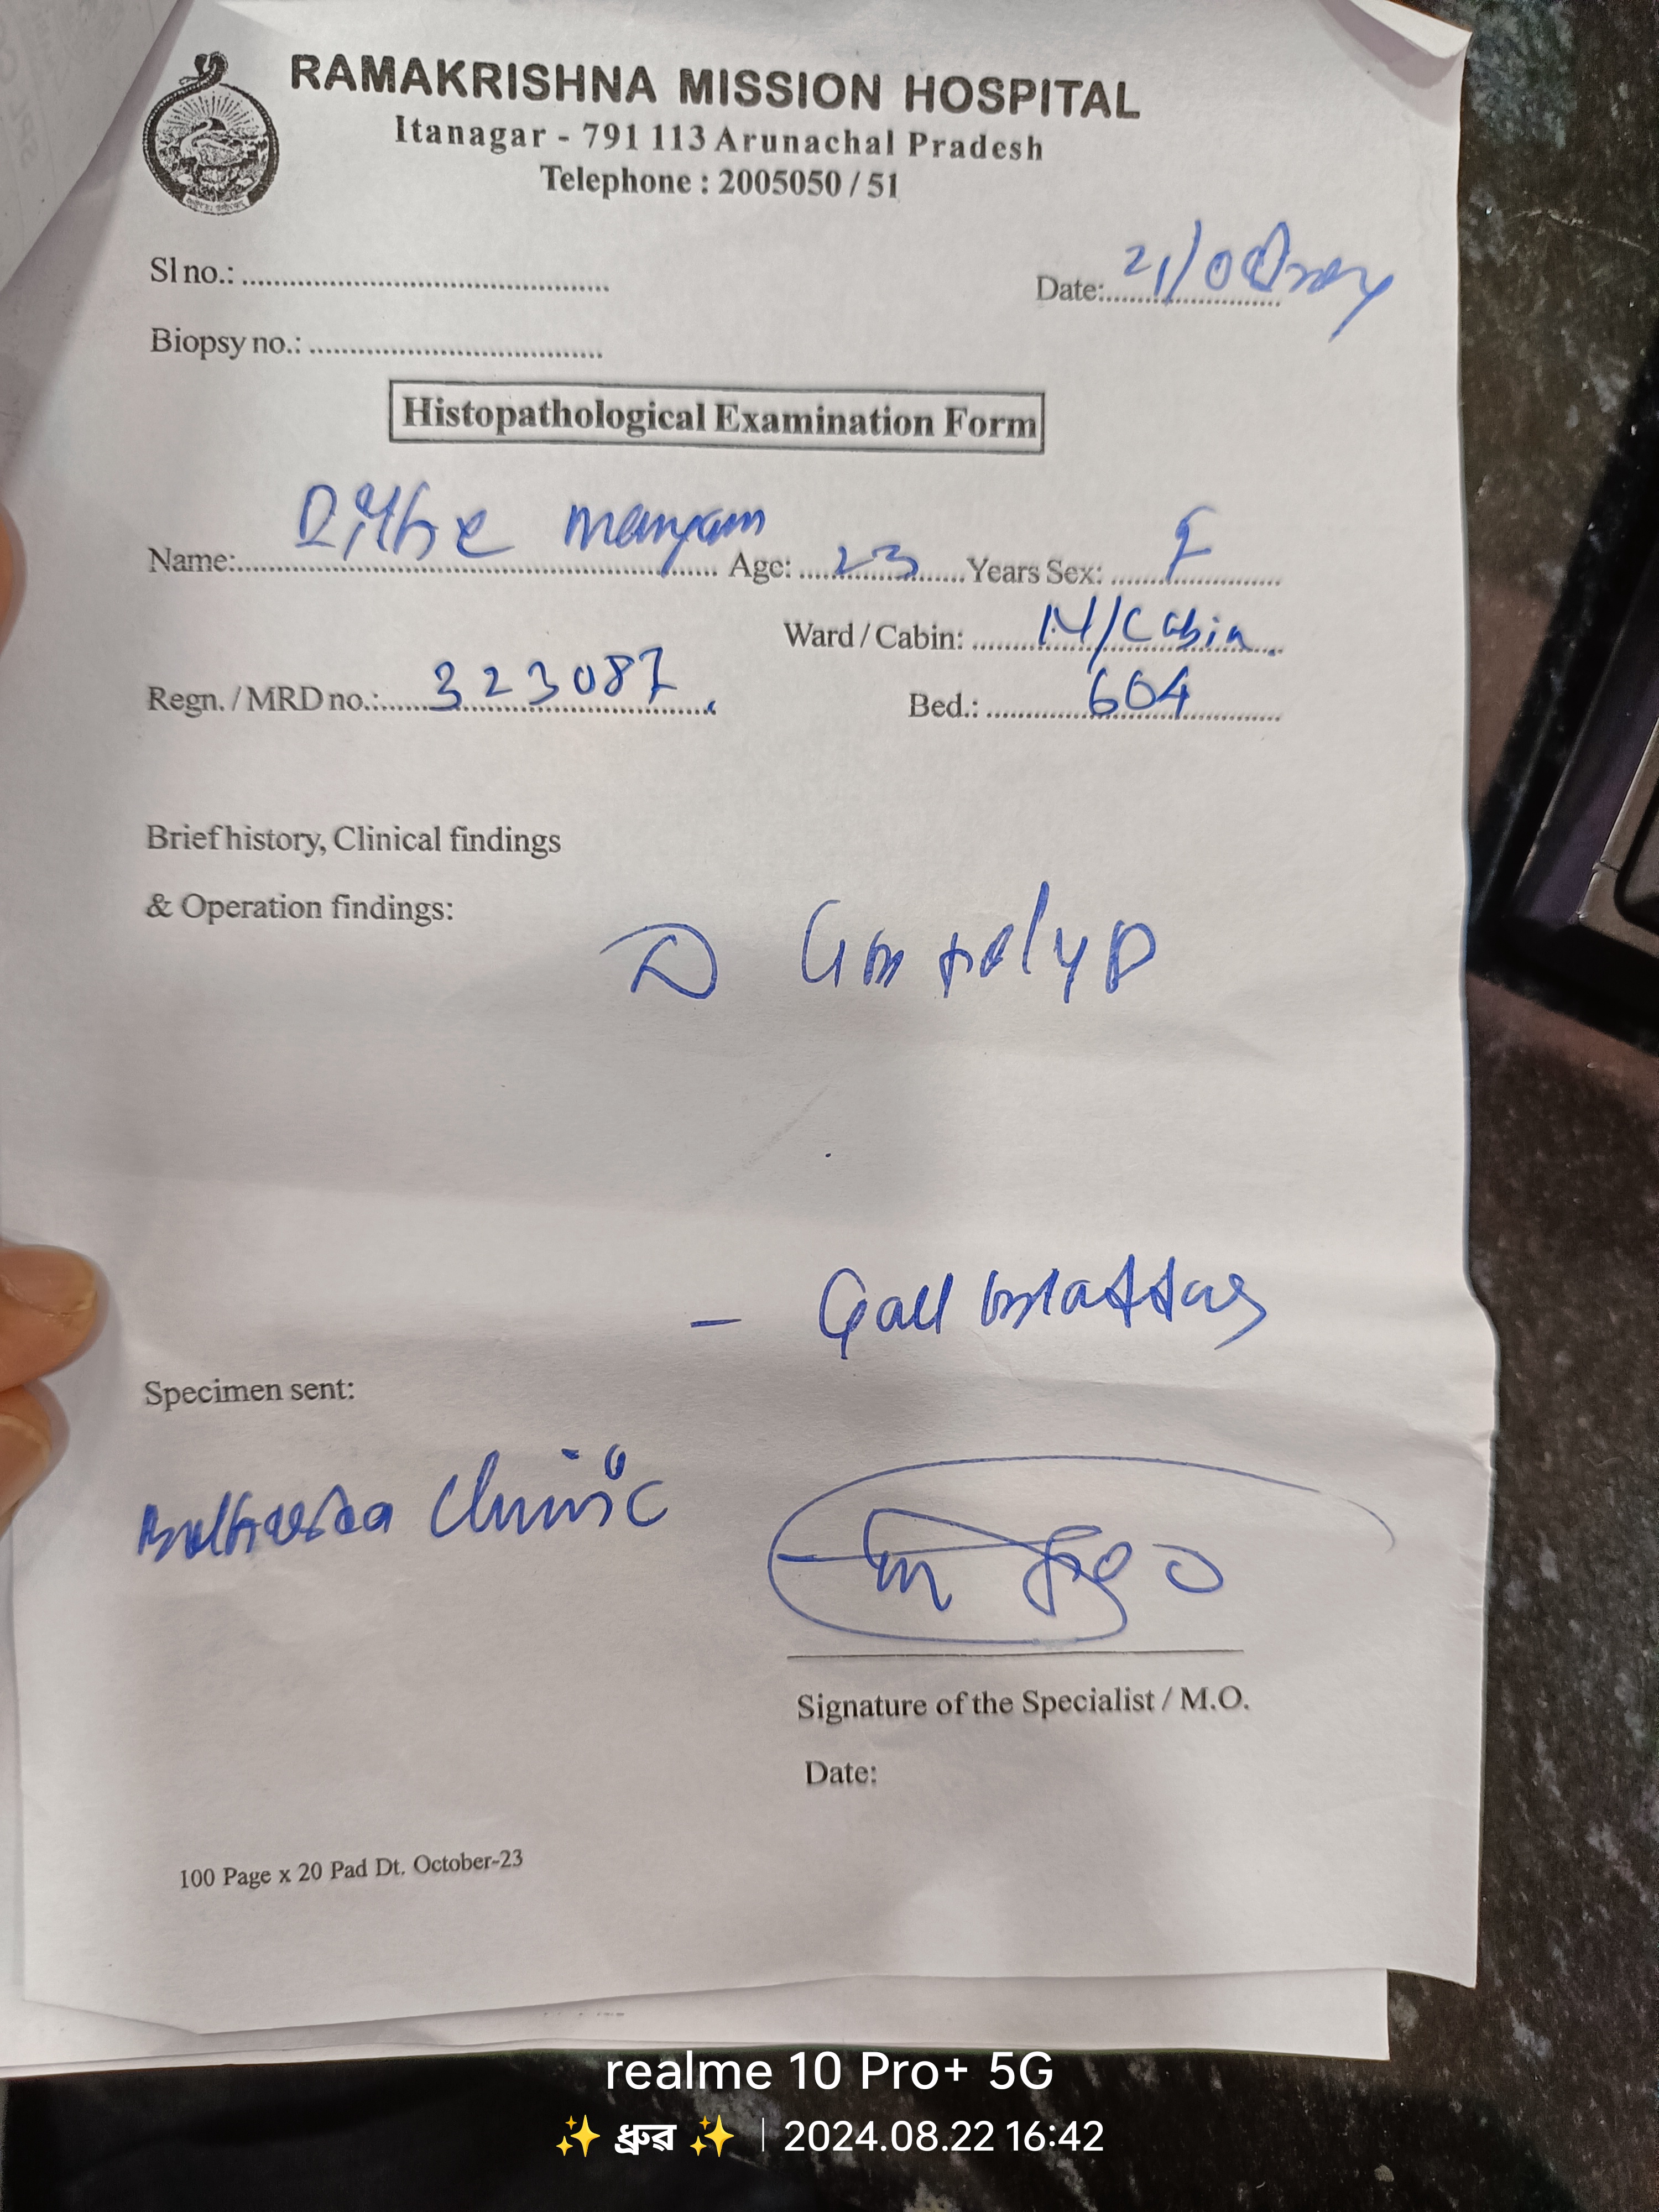 RAMAKRISHNA MISSION HOSPITAL
Itanagar - 791 113 Arunachal Pradesh
Telephone : 2005050 / 51
Sl no.:
Date: 21/08/2024
Biopsy no.:
Histopathological Examination Form
Name: Age: 23 Years Sex: F
Ward / Cabin: N/Cabin
Regn. / MRD no.: 323087 Bed.: 604
Brief history, Clinical findings
& Operation findings:
polyp
- Gall bladder
Specimen sent:
Clinic
Signature of the Specialist / M.O.
Date:
100 Page x 20 Pad Dt. October-23
realme 10 Pro+ 5G
✨ ধ্রুৱ ✨ | 2024.08.22 16:42